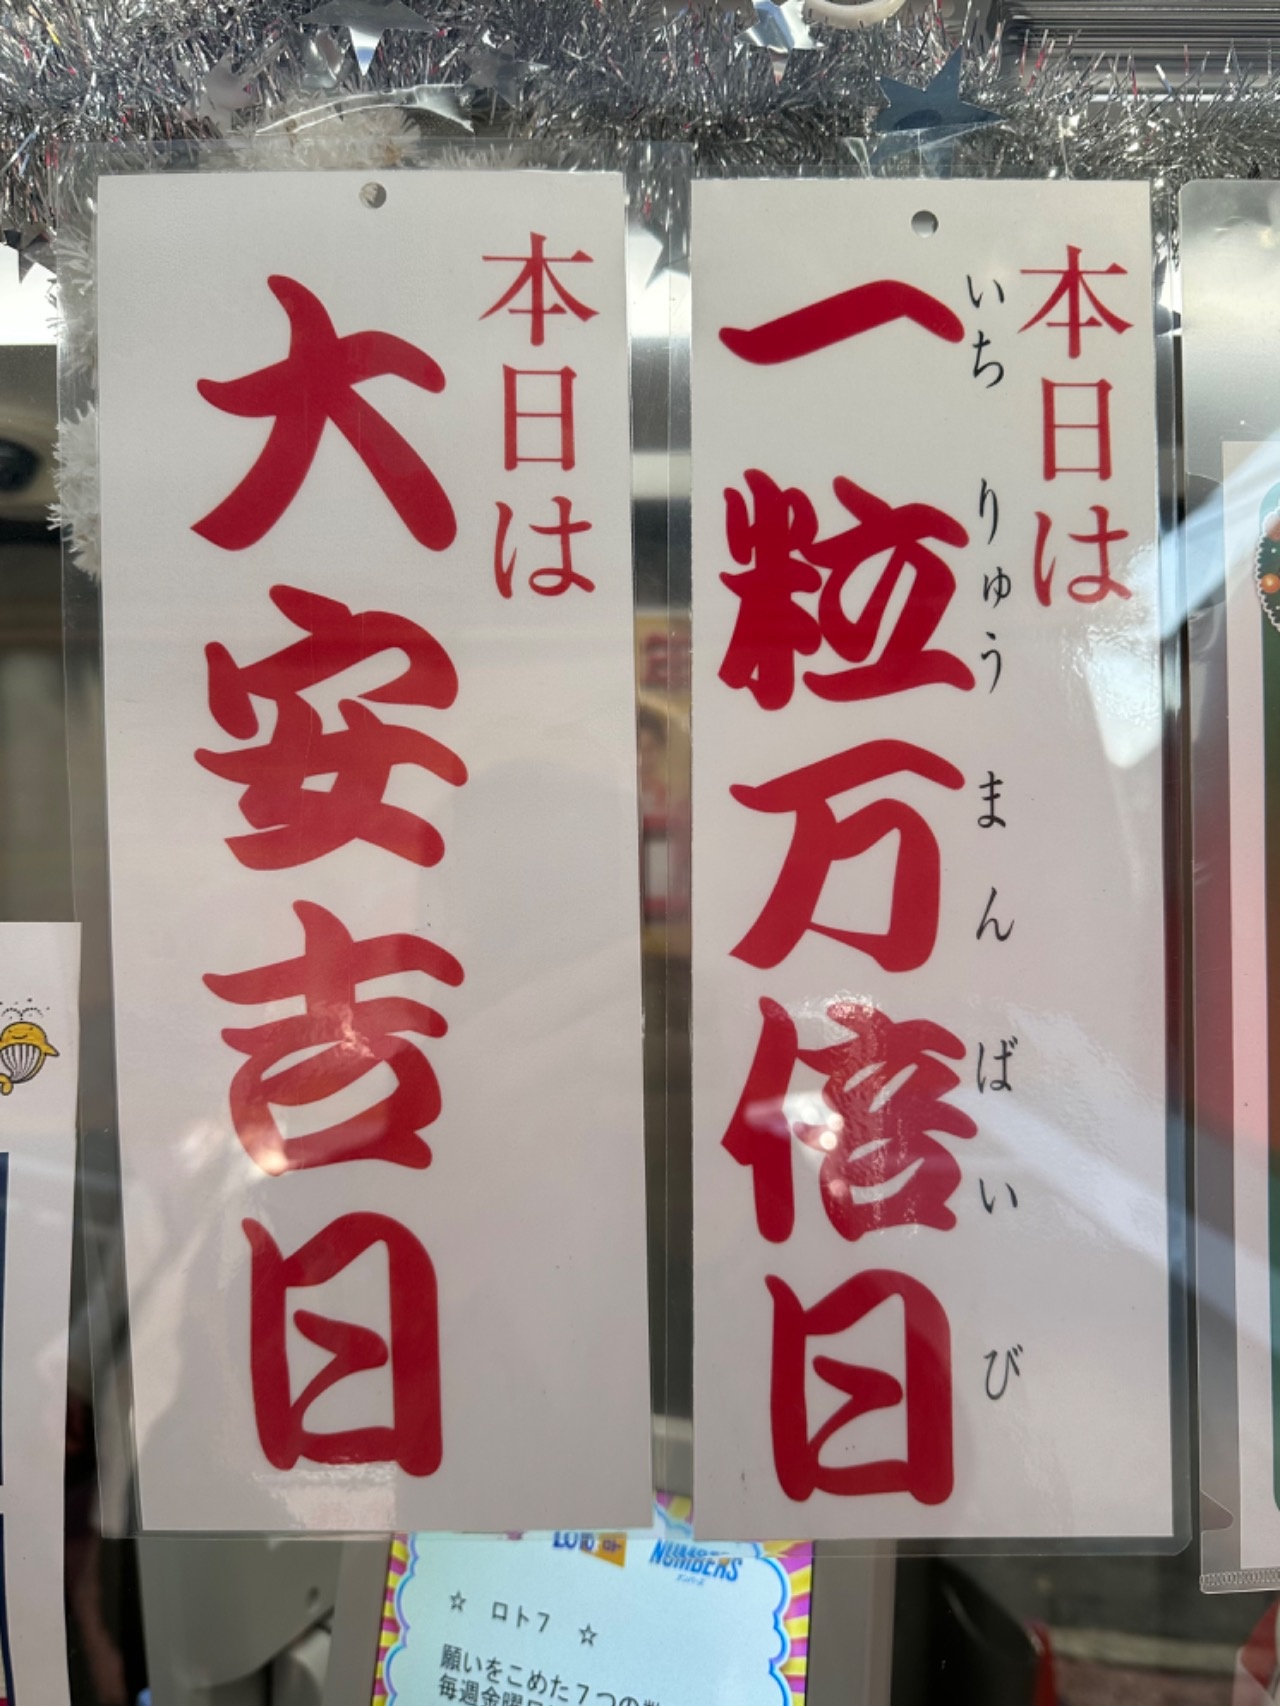 本日は
一粒万倍日
いちりゅうまんばいび
本日は
大安吉日
NUMBERS
☆ ロト7 ☆
願いをこめた7つの
毎週金曜日